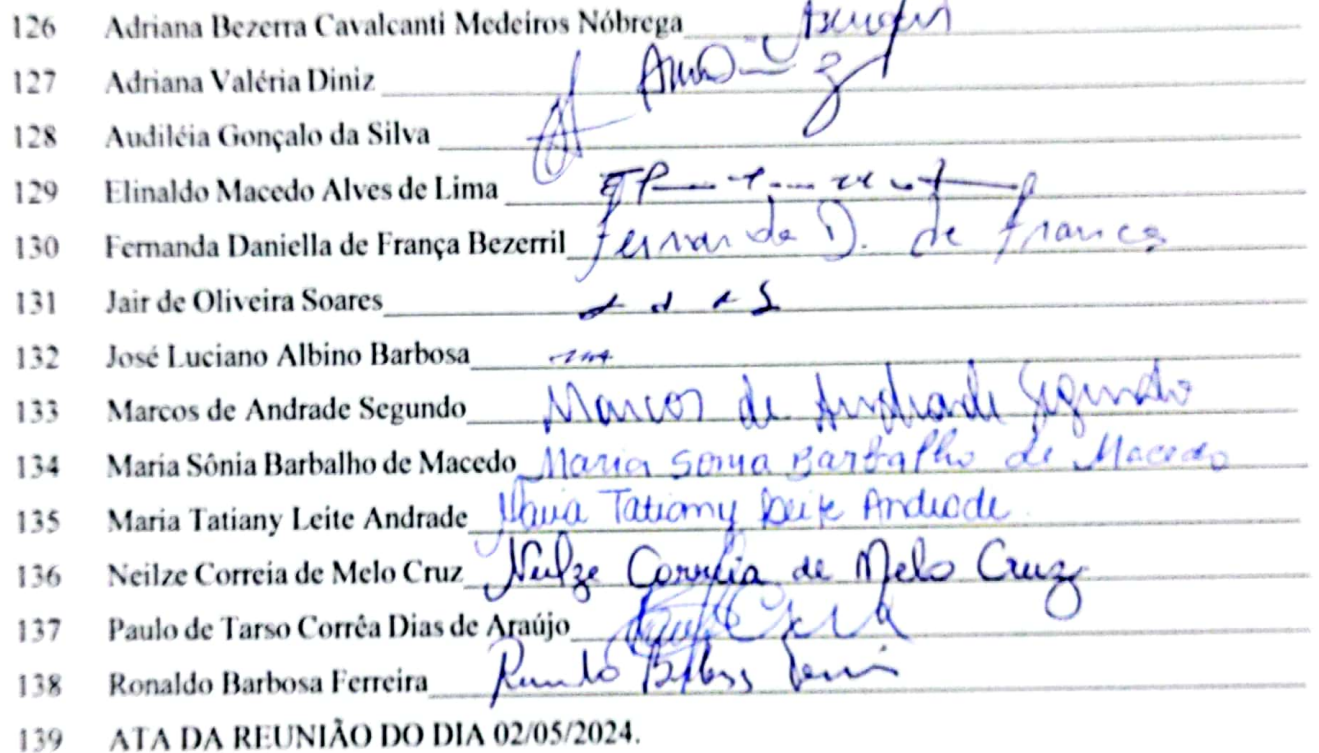 126 Adriana Bezerra Cavalcanti Medeiros Nóbrega
127 Adriana Valéria Diniz
128 Audiléia Gonçalo da Silva
129 Elinaldo Macedo Alves de Lima
130 Fernanda Daniella de França Bezerril Fernanda D. de França
131 Jair de Oliveira Soares
132 José Luciano Albino Barbosa
133 Marcos de Andrade Segundo Marcos de Andrade Segundo
134 Maria Sônia Barbalho de Macedo Maria Sonia Barbalho de Macedo
135 Maria Tatiany Leite Andrade Maria Tatiany Leite Andrade
136 Neilze Correia de Melo Cruz Neilze Correia de Melo Cruz
137 Paulo de Tarso Corrêa Dias de Araújo
138 Ronaldo Barbosa Ferreira
139 ATA DA REUNIÃO DO DIA 02/05/2024.